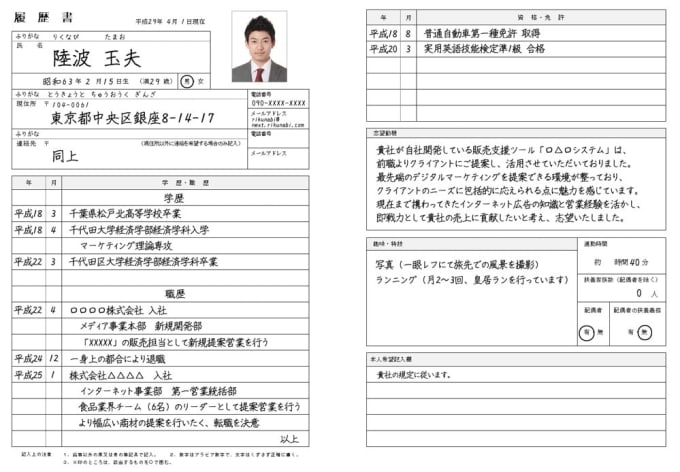 履 歴 書
平成29年 4月 1日現在
ふりがな りくなび たまお
氏 名
陸波 玉夫
昭和63年 2月15日生 (満29歳) 男 女
ふりがな とうきょうと ちゅうおうく ぎんざ
現住所 〒104-0061
東京都中央区銀座8-14-17
電話番号
090-XXXX-XXXX
メールアドレス
rikunabi@
next.rikunabi.com
ふりがな
連絡先 〒 (現住所以外に連絡を希望する場合のみ記入)
同上
電話番号
メールアドレス
年 月 学 歴・職 歴
学歴
平成18 3 千葉県松戸北高等学校卒業
平成18 4 千代田大学経済学部経済学科入学
マーケティング理論専攻
平成22 3 千代田区大学経済学部経済学科卒業
職歴
平成22 4 ○○○○株式会社 入社
メディア事業本部 新規開発部
「XXXXX」の販売担当として新規提案営業を行う
平成24 12 一身上の都合により退職
平成25 1 株式会社△△△△ 入社
インターネット事業部 第一営業統括部
食品業界チーム(6名)のリーダーとして提案営業を行う
より幅広い商材の提案を行いたく、転職を決意
以上
記入上の注意 1、鉛筆以外の黒又は青の筆記具で記入。 2、数字はアラビア数字で、文字はくずさず正確に書く。
3、※印のところは、該当するものを○で囲む。
年 月 資 格・免 許
平成18 8 普通自動車第一種免許 取得
平成20 3 実用英語技能検定準1級 合格
志望動機
貴社が自社開発している販売支援ツール「○△○システム」は、
前職よりクライアントにご提案し、活用させていただいておりました。
最先端のデジタルマーケティングを提案できる環境が整っており、
クライアントのニーズに包括的に応えられる点に魅力を感じています。
現在まで携わってきたインターネット広告の知識と営業経験を活かし、
即戦力として貴社の売上に貢献したいと考え、志望いたしました。
趣味・特技
写真(一眼レフにて旅先での風景を撮影)
ランニング(月2〜3回、皇居ランを行っています)
通勤時間
約 時間40分
扶養家族数(配偶者を除く)
0 人
配偶者
有 無
配偶者の扶養義務
有 無
本人希望記入欄
貴社の規定に従います。